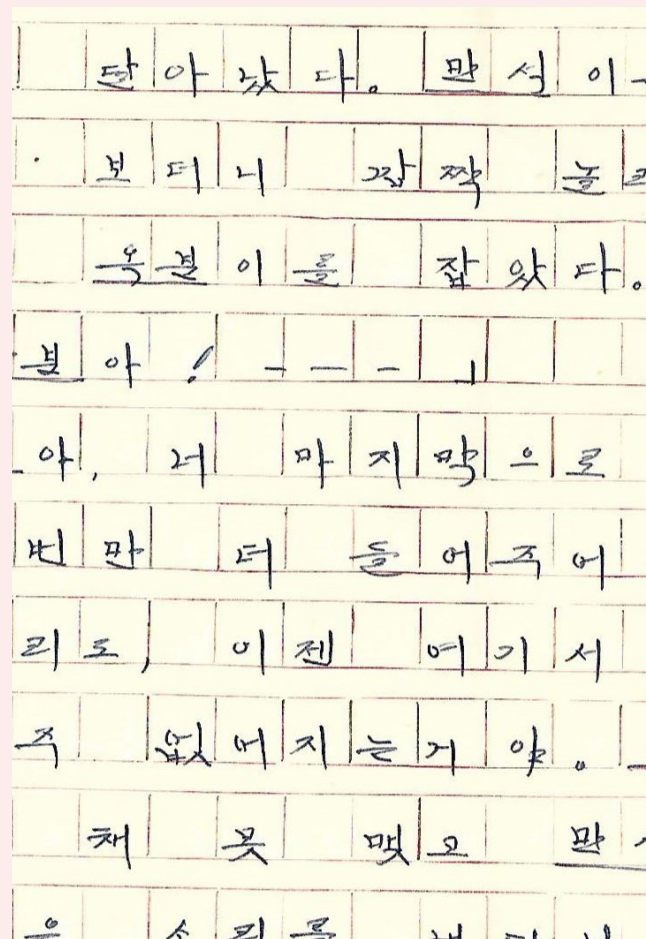 달아났다. 만석이
보더니 깜짝 놀
옥분이를 잡았다.
분아! ---」
아, 너 마지막으로
번만 더 들어주어
리로, 이젠 여기서
주 없어지는거야.
채 못 맺고 만
은 소리를